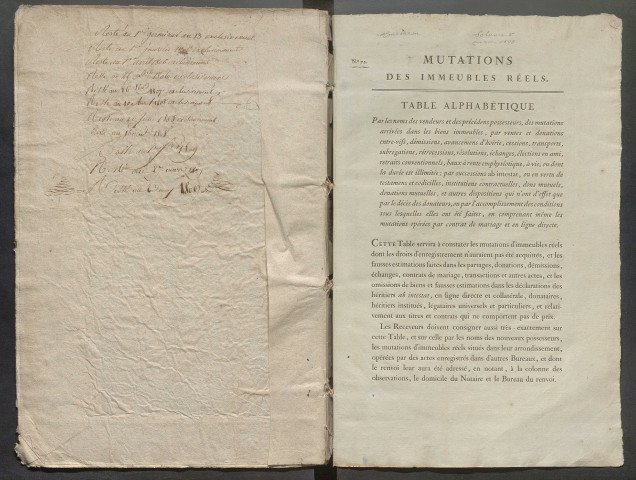 Resté au 1er germinal an 13 exclusivement
Resté au 1er janvier
Resté au
Resté au
Resté au
Resté au
Resté au
Resté au
1809
Resté au 1er
1810
N.o
MUTATIONS
DES IMMEUBLES RÉELS.
TABLE ALPHABÉTIQUE
Par les noms des vendeurs et des précédens possesseurs, des mutations
arrivées dans les biens immeubles, par ventes et donations
entre-vifs, démissions, avancemens d'hoirie, cessions, transports,
subrogations, rétrocessions, résolutions, échanges, élections en ami,
retraits conventionnels, baux à rente emphytéotique, à vie, ou dont
la durée est illimitée; par successions ab intestat, ou en vertu de
testamens et codicilles, institutions contractuelles, dons mutuels,
donations mutuelles, et autres dispositions qui n'ont d'effet que
par le décès des donateurs, ou par l'accomplissement des conditions
sous lesquelles elles ont été faites, en comprenant même les
mutations opérées par contrat de mariage et en ligne directe.
CETTE Table servira à constater les mutations d'immeubles réels
dont les droits d'enregistrement n'auraient pas été acquittés, et les
fausses estimations faites dans les partages, donations, démissions,
échanges, contrats de mariage, transactions et autres actes, et les
omissions de biens et fausses estimations dans les déclarations des
héritiers ab intestat, en ligne directe et collatérale, donataires,
héritiers institués, légataires universels et particuliers, et relati-
vement aux titres et contrats qui ne comportent pas de prix.
Les Receveurs doivent consigner aussi très-exactement sur
cette Table, et sur celle par les noms des nouveaux possesseurs,
les mutations d'immeubles réels situés dans leur arrondissement,
opérées par des actes enregistrés dans d'autres Bureaux, et dont
le renvoi leur aura été adressé, en notant, à la colonne des
observations, le domicile du Notaire et le Bureau du renvoi.